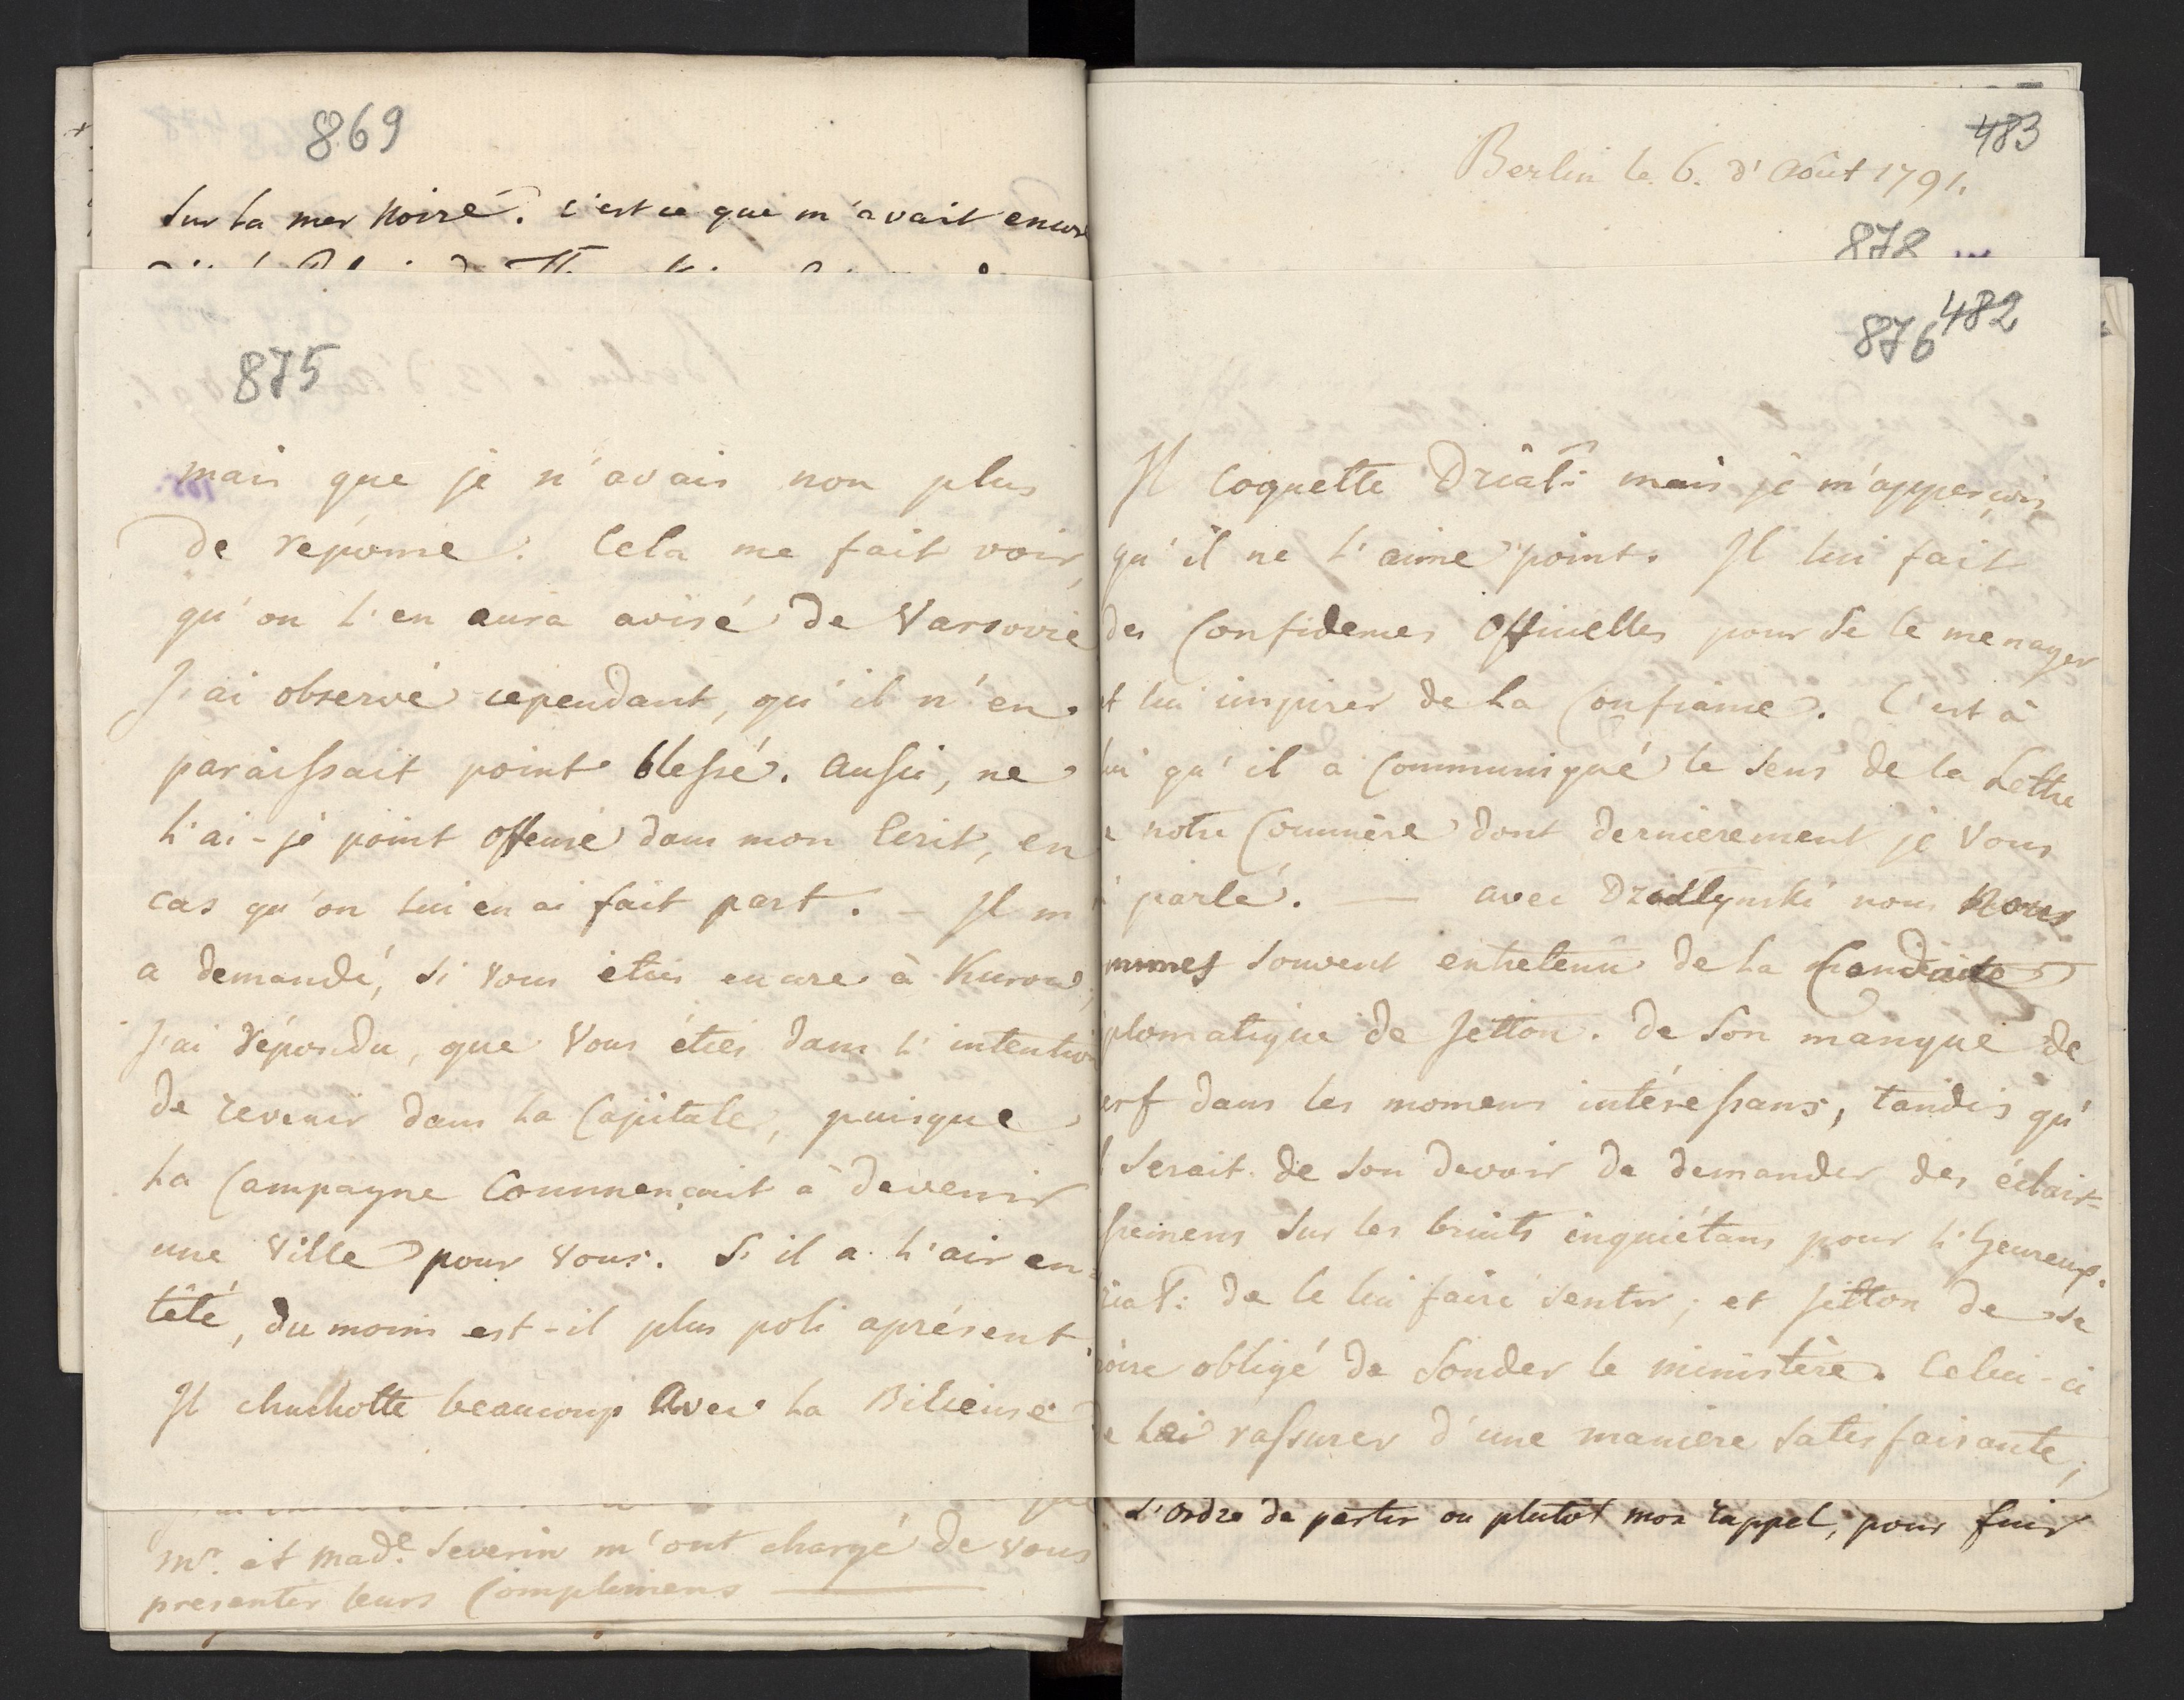 869
Sur la mer Noire. c'est ce que m'avait encore
875
mais que je n'avais non plus
de réponse. Cela me fait voir,
qu'on l'en aura avisé de Varsovie
J'ai observé cependant, qu'il n'en
paraissait point blessé. Aussi, ne
l'ai-je point offensé dans mon Ecrit, en
cas qu'on lui en ai fait part. – Il m
a demandé, si vous étiés encore à Kurow,
j'ai répondu, que Vous étiés dans l'intention
de revenir dans la Capitale, puisque
la Campagne Commençait à devenir
une Ville pour vous. S'il a l'air en=
têté, du moins est-il plus poli aprésent.
Il chuchotte beaucoup Avec la Bilieuse
Mr. et Made. Severin m'ont chargé de vous
presenter leurs Complimens
483
Berlin le 6. d'Août 1791.
878
482
876
Il Coquette Dział: mais je m'apperçois
qu'il ne l'aime point. Il lui fait
des Confidences Officielles pour se le menager
et lui inspirer de la Confiance. C'est à
lui qu'il a Communiqué le sens de la Lettre
notre Commère dont dernièrement je Vous
parlé. — avec Dziallynski nous nous
mmes souvent entretenu de la Conduite
plomatique de Jetton. de son manque de
erf dans les momens intéressans, tandis qu'
serait de son devoir de demander des éclair=
ssemens sur les bruits inquiétans pour l'heureux.
ział: de le lui faire sentir; et Jetton de se
roire obligé de sonder le ministère. Celui-ci
lui rassurer d'une manière satisfaisante;
L'ordre de partir ou plutot mon rappel, pour fuir